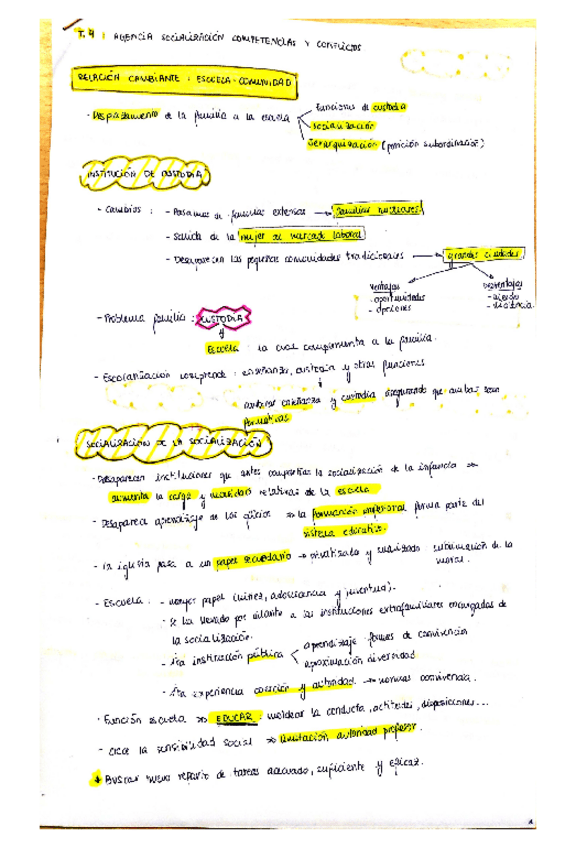 T.4 : AGENCIA SOCIALIZACIÓN COMPETENCIAS Y CONFLICTOS
RELACIÓN CAMBIANTE : ESCUELA-COMUNIDAD
- Desplazamiento de la familia a la escuela
funciones de custodia
socialización
Jerarquización (posición subordinación)
INSTITUCIÓN DE CUSTODIA
- Cambios : - Pasamos de familias extensas → familias nucleares
- Salida de la mujer al mercado laboral
- Desaparecen las pequeñas comunidades tradicionales → grandes ciudades
ventajas
- oportunidades
- opciones
desventajas
- distancia
- Problema familia : CUSTODIA
Escuela : la cual complementa a la familia.
- Escolarización comprende : enseñanza, custodia y otras funciones
enseñanza y custodia asegurando que ambas sean
formativas
SOCIALIZACIÓN DE LA SOCIALIZACIÓN
- Desaparecen instituciones que antes compartían la socialización de la infancia ⇒
aumenta la carga y relativas de la escuela
- Desaparece aprendizaje de los oficios ⇒ la formación profesional forma parte del
sistema educativo.
- La iglesia pasa a un papel secundario → privatizado y subordinación de la
moral.
- Escuela : - mayor papel (niñez, adolescencia y juventud).
- Se ha llevado por delante a las instituciones extrafamiliares encargadas de
la socialización.
- 1ra institución pública
aprendizaje formas de convivencia
aproximación diversidad
- 1ra experiencia coerción y autoridad → normas convivencia.
- Función escuela ⇒ EDUCAR : moldear la conducta, actitudes, disposiciones...
- Crece la sensibilidad social ⇒ limitación autoridad profesor.
* Buscar nuevo reparto de tareas adecuado, suficiente y eficaz.